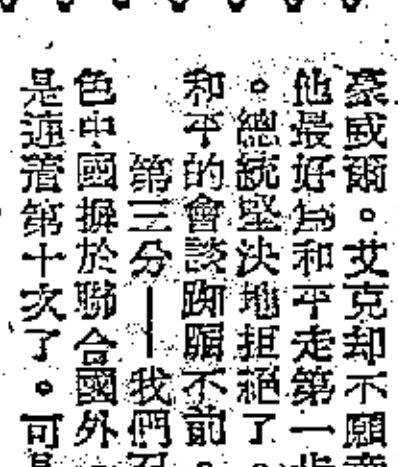 豪威爾。艾克却不願
他最好為和平走第一步
。總統堅決地拒絕了。
和平的會談踟躕不前。
第三分—我們不
色中國摒於聯合國外
是連着第十次了。可是